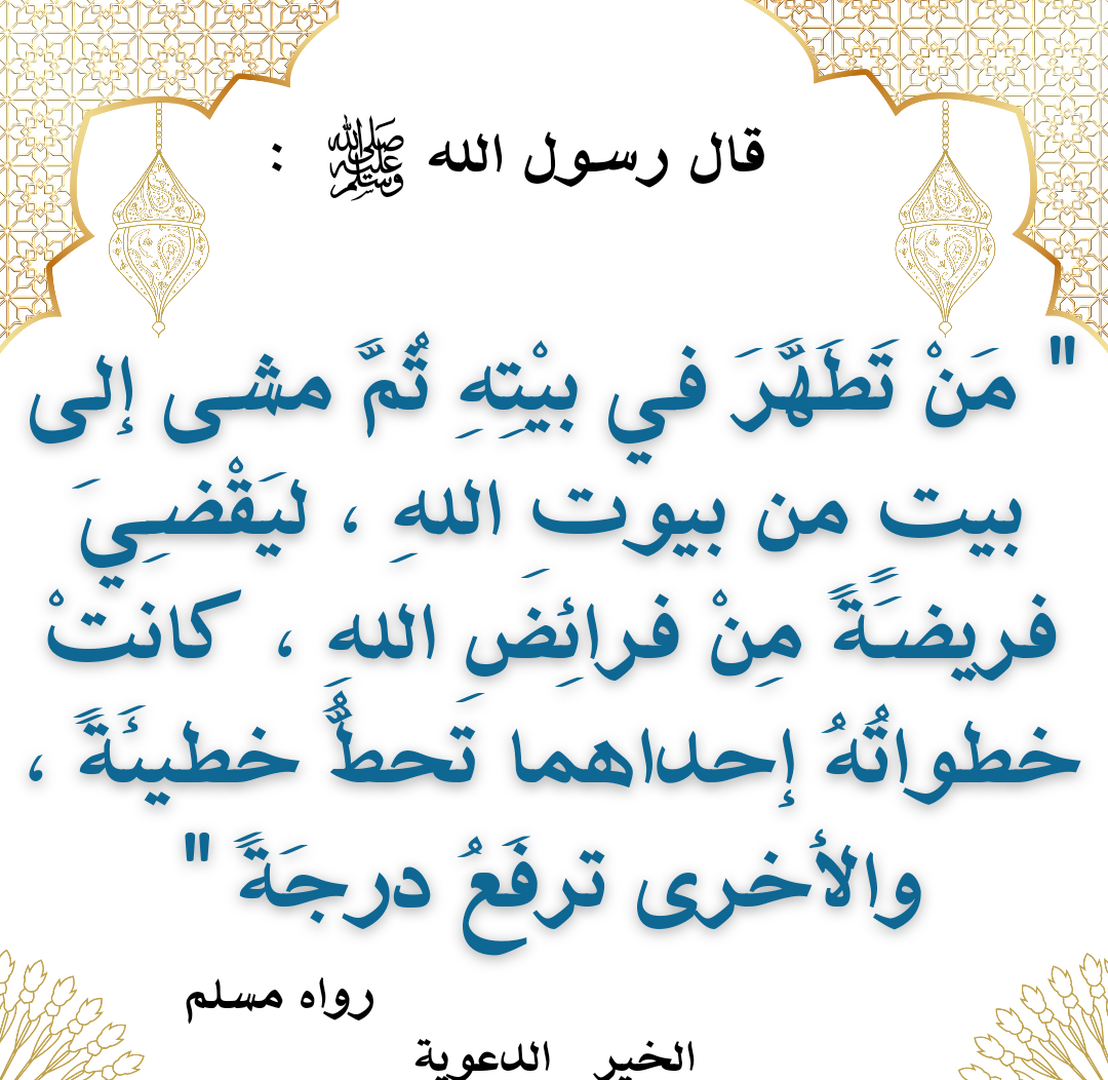 قال رسول الله ﷺ :
" مَنْ تَطَهَّرَ في بيْتِهِ ثُمَّ مشى إلى
بيت من بيوت اللهِ ، ليَقْضِيَ
فريضَةً مِنْ فرائِضَِ الله ، كانتْ
خطواتُهُ إحداهما تَحطُّ خطيئَةً ،
والأخرى ترفَعُ درجَةً "
رواه مسلم
الخير الدعوية